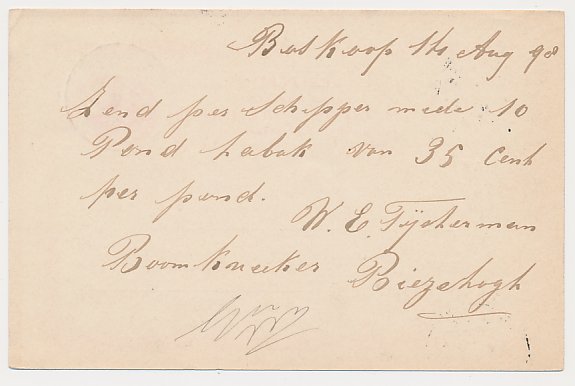 Boskoop 14 Aug 98
Zend per Schipper mede 10
Pond tabak van 35 Cent
per pond.
W. E. Tijsterman
Boomkweeker Biezehogh